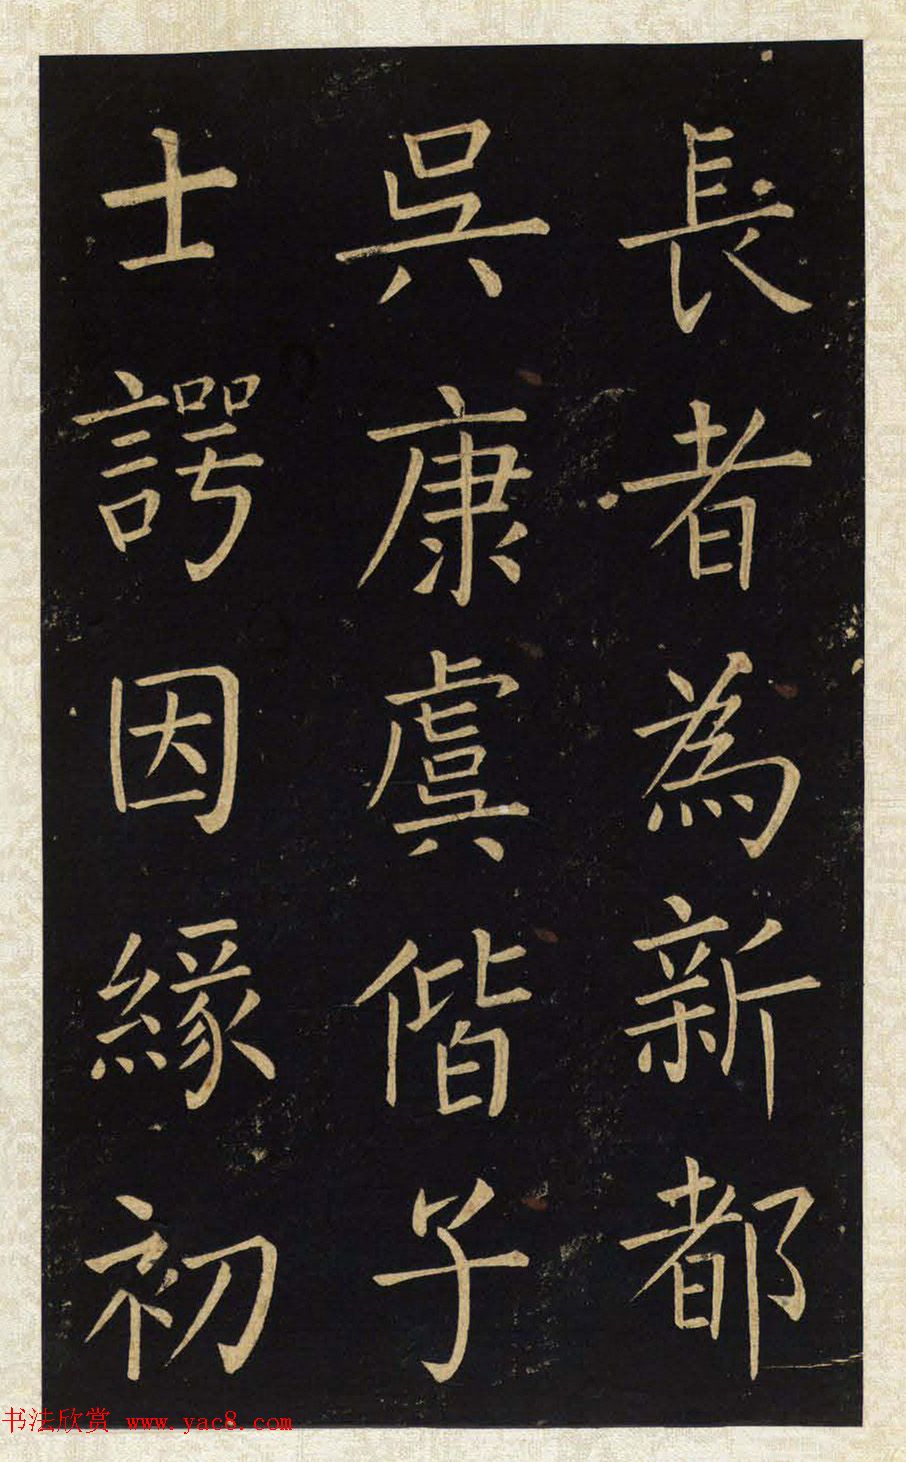 長者為新都
吳康虞偕子
士諤因緣初
书法欣赏 www.yac8.com